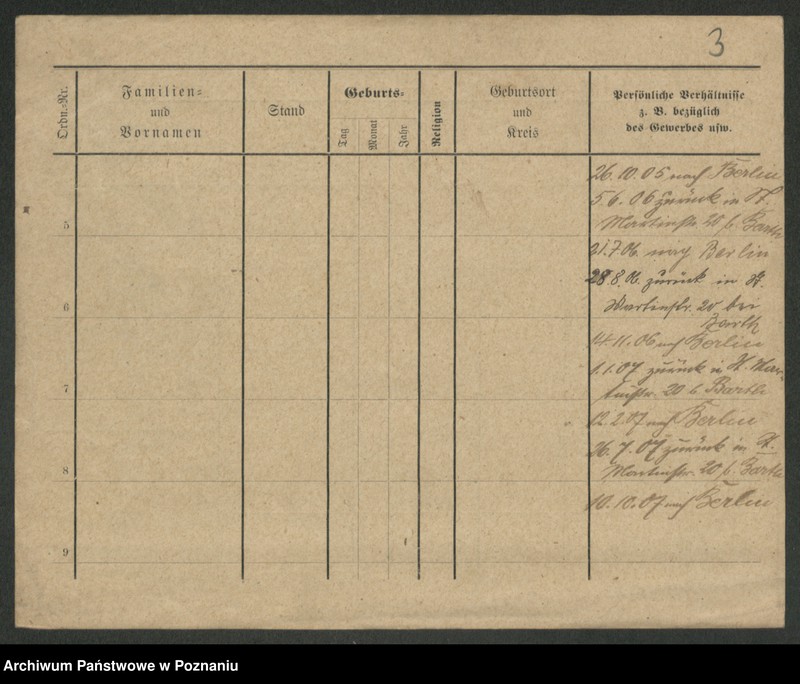 3
Ordn.-Nr.
Familien-
und
Vornamen
Stand
Geburts-
Tag
Monat
Jahr
Religion
Geburtsort
und
Kreis
Persönliche Verhältnisse
z. B. bezüglich
des Gewerbes usw.
26.10.05 nach Berlin
5 6. 06 zurück in St.
Martinstr. 20 b. Barth
21.7.06. nach Berlin
28.8.06. zurück in St.
Martinstr. 20 bei
Barth
14.11.06 nach Berlin
1.1.07 zurück in St. Mar-
tinstr. 20 b. Barth
12.2.07 nach Berlin
26.7.07 zurück in St.
Martinstr. 20 b. Barth
10.10.07 nach Berlin
5
6
7
8
9
Archiwum Państwowe w Poznaniu